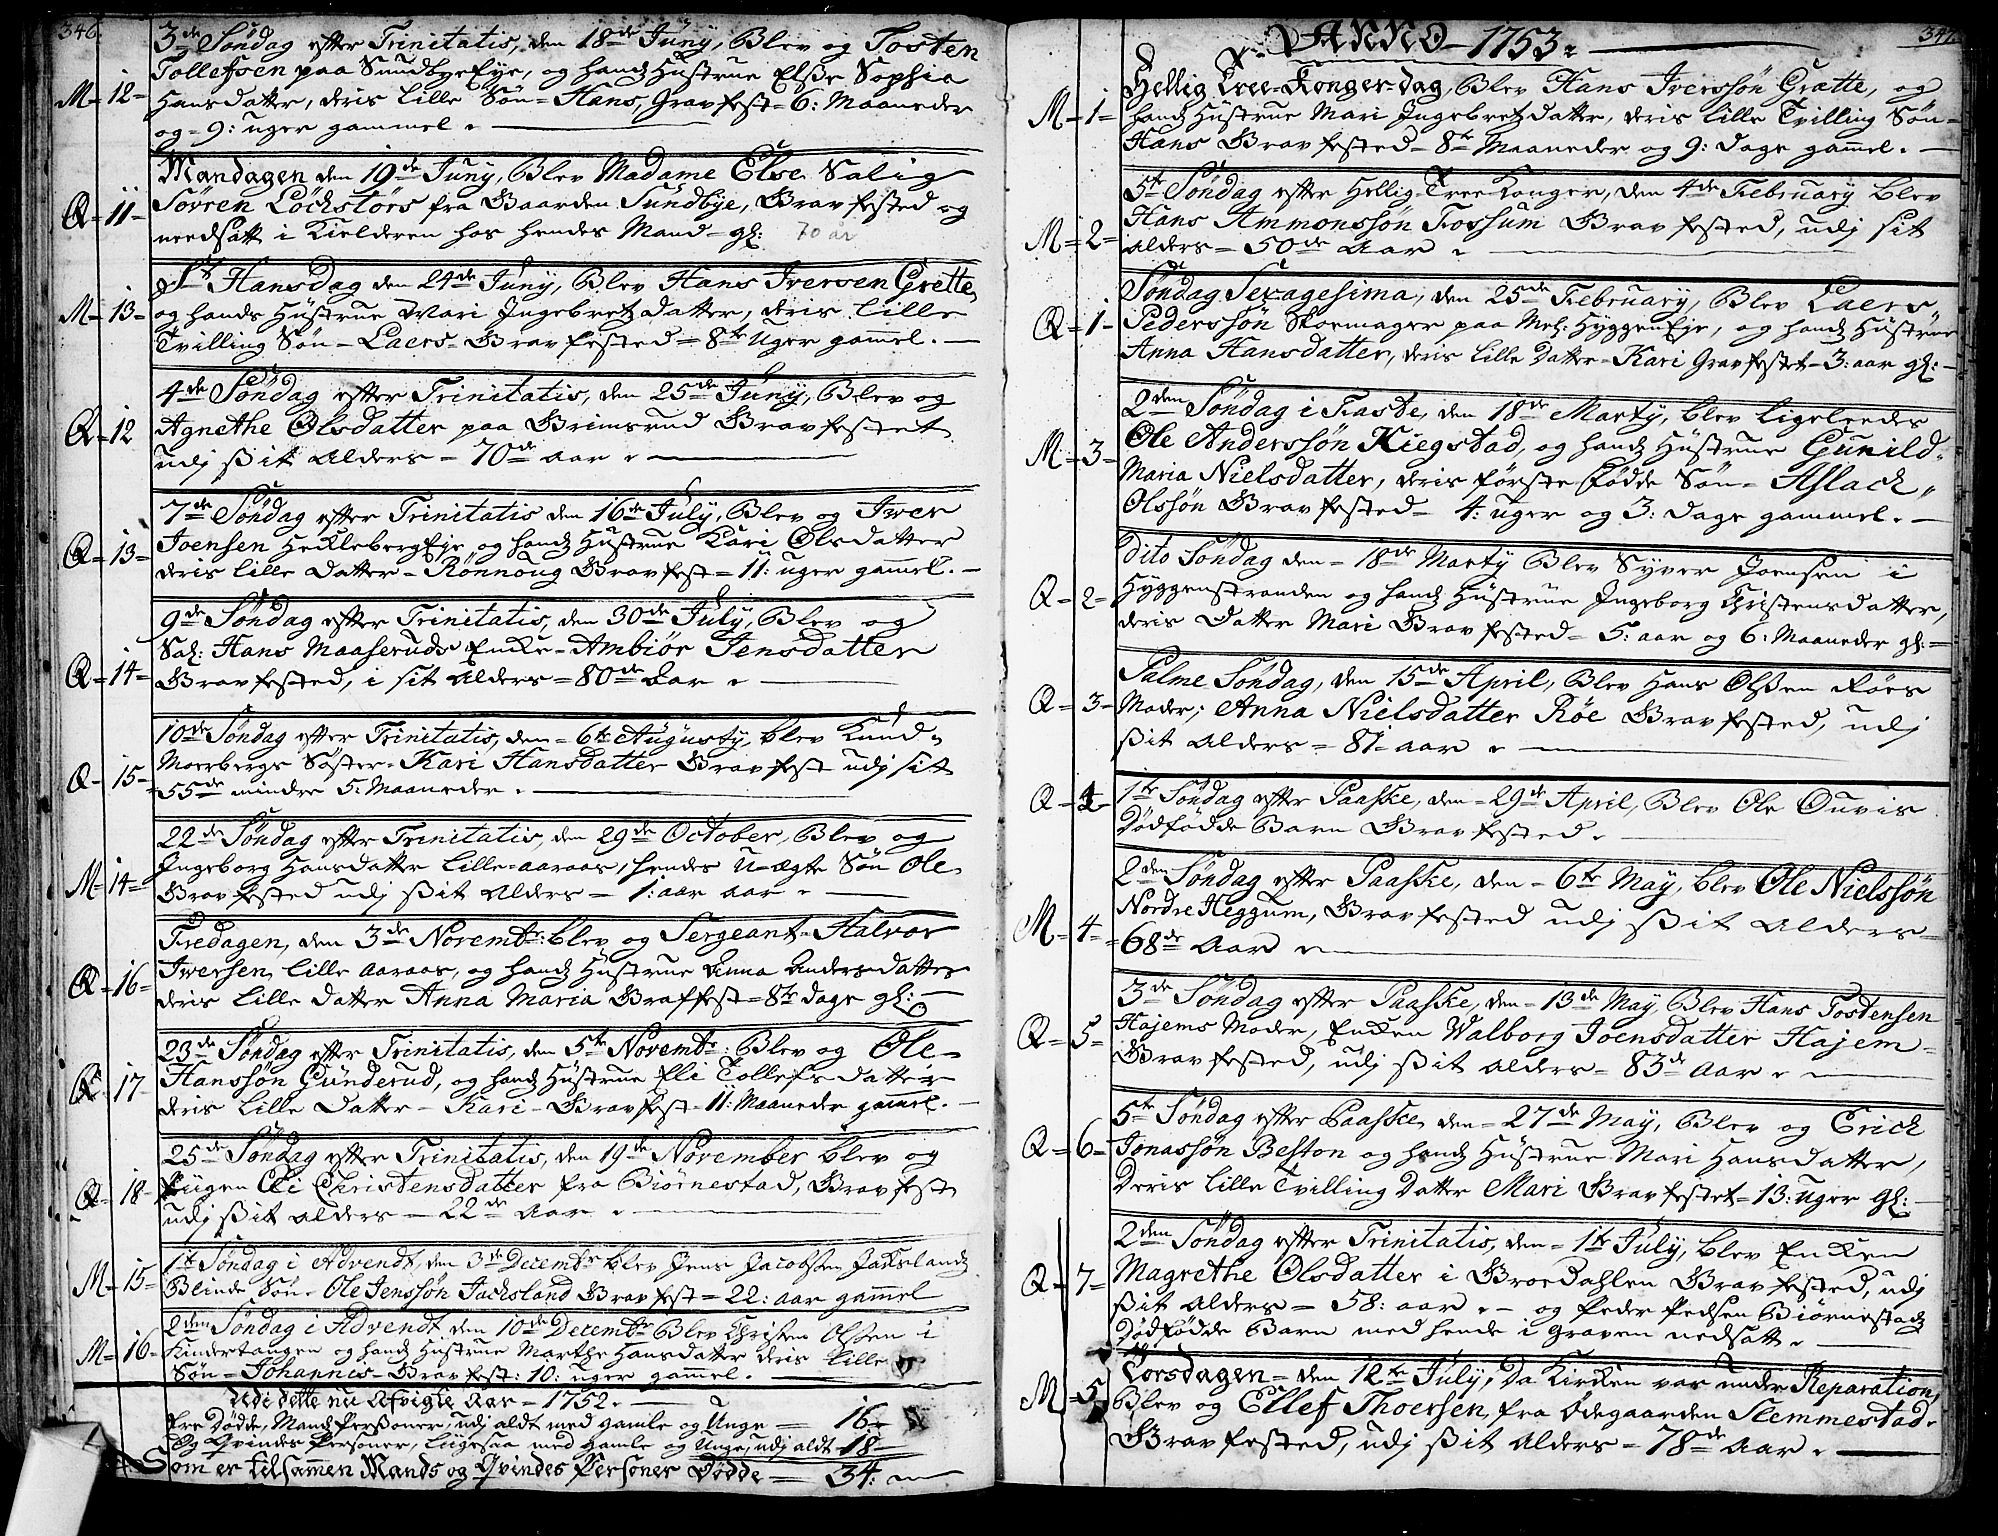 346.
3de Søndag efter Trinitatis, den 18de Juny, Blev og Tosten
Tollefsen paa Sundbye Eye, og hands Hustrue Elsse Sophia
M-12- Hansdatter, deris lille Søn-Hans, Gravfest-6: Maaneder
og-9: uger gammel.
Mandagen den 19de Juny, Blev Madame Else Salig
Q-11- Sørren Løchstørs fra Gaarden Sundbye, Gravfested og
needsatt i Kielderen hos hendes Mand-gl: 70 år
St Hansdag den 24de Juny, Blev Hans Iversen Grette,
M-13- og hands Hustrue Mari Ingebretzdatter, deris lille
Tvilling Søn-Laers-Gravfested-8te Uger gammel.
4de Søndag efter Trinitatis, den 25de Juny, Blev og
Q-12 Agnethe Olsdatter paa Grimsrud Gravfestet
udj ßit Alders-70de Aar
7de Søndag efter Trinitatis den 16de July, Blev og Iver
Q-13- Joensen Heckleberg Eye og hands Hustrue Kari Olsdatter
deris lille Datter-Rønnoug Gravfest-11: uger gammel.
9de Søndag efter Trinitatis, den 30de July, Blev og
Q-14- Sal: Hans Maaseruds Encke-Ambiør Jensdatter
Gravfested, i sit Alders-80de Aar
10de Søndag efter Trinitatis, den-6te Augusty, blev Knud
Q-15- Morbergs Søster-Kari Hansdatter Gravfest udj sit
55de mindre 5. Maaneder.
22de Søndag efter Trinitatis, den 29de October, Blev og
M-14- Ingeborg Hansdatter Lille-aaraas, hendes u-ægte Søn Ole
Gravfested udj ßit Alders-1: aar aar
Fredagen, den 3de Novembr: blev og Sergeant-Halvor
Q-16- Iversen, lille Aaraas, og hands Hustrue Anna Andersdatter
deris lille datter Anna Maria Graffest-8te dage gl:
23de Søndag efter Trinitatis, den 5te Novembr: Blev og Ole
Q-17- Hanssøn Gunderud, og hands Hustrue Eli Tollefsdatter
deris lille Datter-Kari-Gravfest-11: Maaneder gammel.
25de Søndag efter Trinitatis, den 19de November blev og
Q-18- Piigen Eli Christensdatter fra Biørnestad, Gravfest
udj ßit alders-22de Aar
1te Søndag i Advendt, den 3de Decembr blev Jens Jacobsen Jaxelands
M-15- Blinde Søn-Ole Jenssøn Jachsland Gravfest-22: aar gammel
2den Søndag i Advendt den 10de Decembr Blev Christen Olsen i
M-16- Kindertangen og hands Hustrue Marthe Hansdatter deris lille
Søn-Johannes-Gravfest: 10: uger gammel.
Udi dette nu Afvigte Aar-1752.
Ere Dødde, Mands Persohner, udj aldt med gamle og Unge-16
Og Qvindes Personer, Liigesaa med gamle og Unge, udj aldt-18
Som er tilsammen Mands og Qvindes Personer Dødde-34:
347
ANNO-1753.
Hellig Tree-Konger-dag, Blev Hans Iverssøn Grætte, og
M-1- hands Hustrue Mari Ingebretzdatter, deris lille Tvilling Søn-
Hans Gravfested-8te Maaneder og 9: dage gammel.
5te Søndag efter Hellig Tree Konger, den 4de February blev
M-2- Hans Ammonssøn Fossum Gravfested, udj sit
alders-50de Aar
Søndag Sexagesima, den 25de February, Blev Laers
Q-1- Pederssøn Skoemager paa Mel: Hyggen Eje, og hands Hustrue
Anna Hansdatter, deris lille Datter-Kari Gravfestet-3: aar gl:
2den Søndag i Faste, den 18de Marty, blev ligeleedes
M-3- Ole Anderssøn Kiegstad, og hands Hustrue Gunild
Maria Nielsdatter, deris første fødde Søn-Aslach
Olssøn Gravfested-4: uger og 3: dage gammel.
Dito Søndag den-18de Marty Blev Syver Joensen i
Q-2- Hyggenstranden og hands Hustrue Ingeborg Christensdatter,
deris Datter Mari Gravfested-5: aar og 6: Maaneder gl:
Palme Søndag, den 15de April, Blev Hans Olßen Røes
Q-3- Moder; Anna Nielsdatter Røe Gravfested, udj
ßit alders-81-aar
Q-4- 1te Søndag efter Paaske, den-29de April, Blev Ole Ouvis
dødfødde Barn Gravfested.
2den Søndag efter Paaske, den-6te May, blev Ole Nielssøn
M-4- Nordre Heggum, Gravfested udj ßit Alders-
68de Aar
3de Søndag efter Paaske, den-13de May, Blev Hans Tostensen
Q-5- Hajems Moder, Encken Walborg Joensdatter Hajem-
Gravfested, udj ßit alders-83de Aar
5te Søndag efter Paaske, den-27de May, Blev og Erich
Q-6- Jonassøn Beston og hands Hustrue Mari Hansdatter,
Deris lille Tvilling Datter Mari Gravfestet-13: uger gl:
2den Søndag efter Trinitatis, den-1te July, blev Encken
Q-7- Magrethe Olsdatter i Broedahlen Gravfested, udj
ßit Alders-58: aar og Peder Pedsen Biørnestads
dødfødde Barn med hende i graven nedsatt.
Torsdagen-den 12te July, Da Kirken var under Reparation,
M-5 Blev og Ellef Thoersen fra Ødegaarden Slemmestad
Gravfested, udj ßit alders-78de Aar